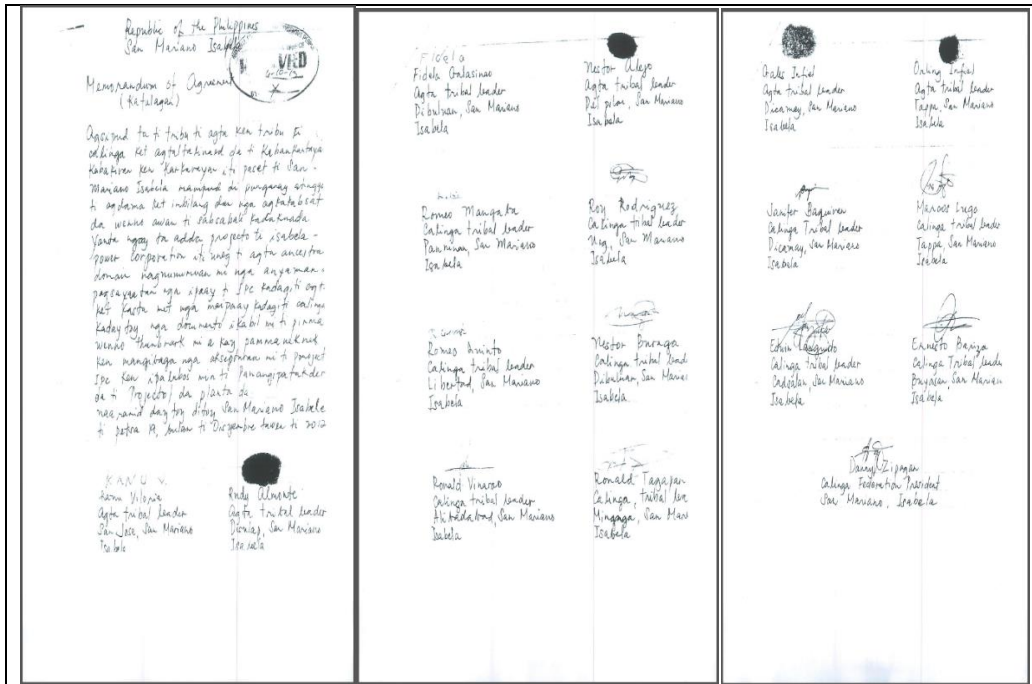 Republic of the Philippines
San Mariano Isabela
VED
Memorandum of Agreement
(Katulagan)
Agsipud ta ti tribu ti agta ken tribu ti
calinga ket agtaltalinaed da ti Kabanbantayan
Kabakiran ken Karkarayan iti paset ti San-
Mariano Isabela manipud di punganay aginggana
ti agdama ket inbilang dan nga agkakabsat
da wenno awan ti sabsabali kadakuada
ta adda projecto ti isabela-
power corporation iti uneg ti agta ancestral
domain nagnunumuan mi nga anyaman
pagsayaatan nga ipaay ti IPC kadagiti agta
ket kasta met nga maipaay kadagiti calinga
Kadaytoy nga documento ikabil mi ti pirma
wenno thumbmark mi a kas pammaneknek
ken mangibaga nga ti project
IPC ken ipalubos min ti panangipatakder
da ti Projecto/da planta da
naaramid daytoy ditoy San Mariano Isabela
ti petsa 19, bulan ti Disyembre tawen ti 2012
KANO V.
Viloria
Agta tribal leader
San Jose, San Mariano
Isabela
Rudy Almonte
Agta tribal leader
San Mariano
Isabela
Fidela
Fidela Galasinao
Agta tribal leader
Dibuluan, San Mariano
Isabela
Nestor Alejo
Agta tribal leader
Del pilar, San Mariano
Isabela
Romeo Mangata
Calinga tribal leader
Panninan, San Mariano
Isabela
Roy Rodriguez
Calinga tribal leader
San Mariano
Isabela
Romeo Quinto
Calinga tribal leader
Libertad, San Mariano
Isabela
Nestor Buraga
Calinga tribal leade
Dibuluan, San Maria
Isabela
Ronald Vinarao
Calinga tribal leader
Alibadabad, San Mariano
Isabela
Ronald Tagapan
Calinga, tribal lea
Minanga, San Mari
Isabela
Infiel
Agta tribal leader
Dicamay, San Mariano
Isabela
Onling Infiel
Agta tribal leader
Tappa, San Mariano
Isabela
Baquiran
Calinga Tribal leader
Dicamay, San Mariano
Isabela
Marcos Lugo
Calinga tribal leader
Tappa, San Mariano
Isabela
Edwin Languido
Calinga tribal leader
Cadsalan, San Mariano
Isabela
Ernesto Bariza
Calinga Tribal leade
Buyasan, San Marian
Isabela
Danny Zipagan
Calinga Federation President
San Mariano, Isabela